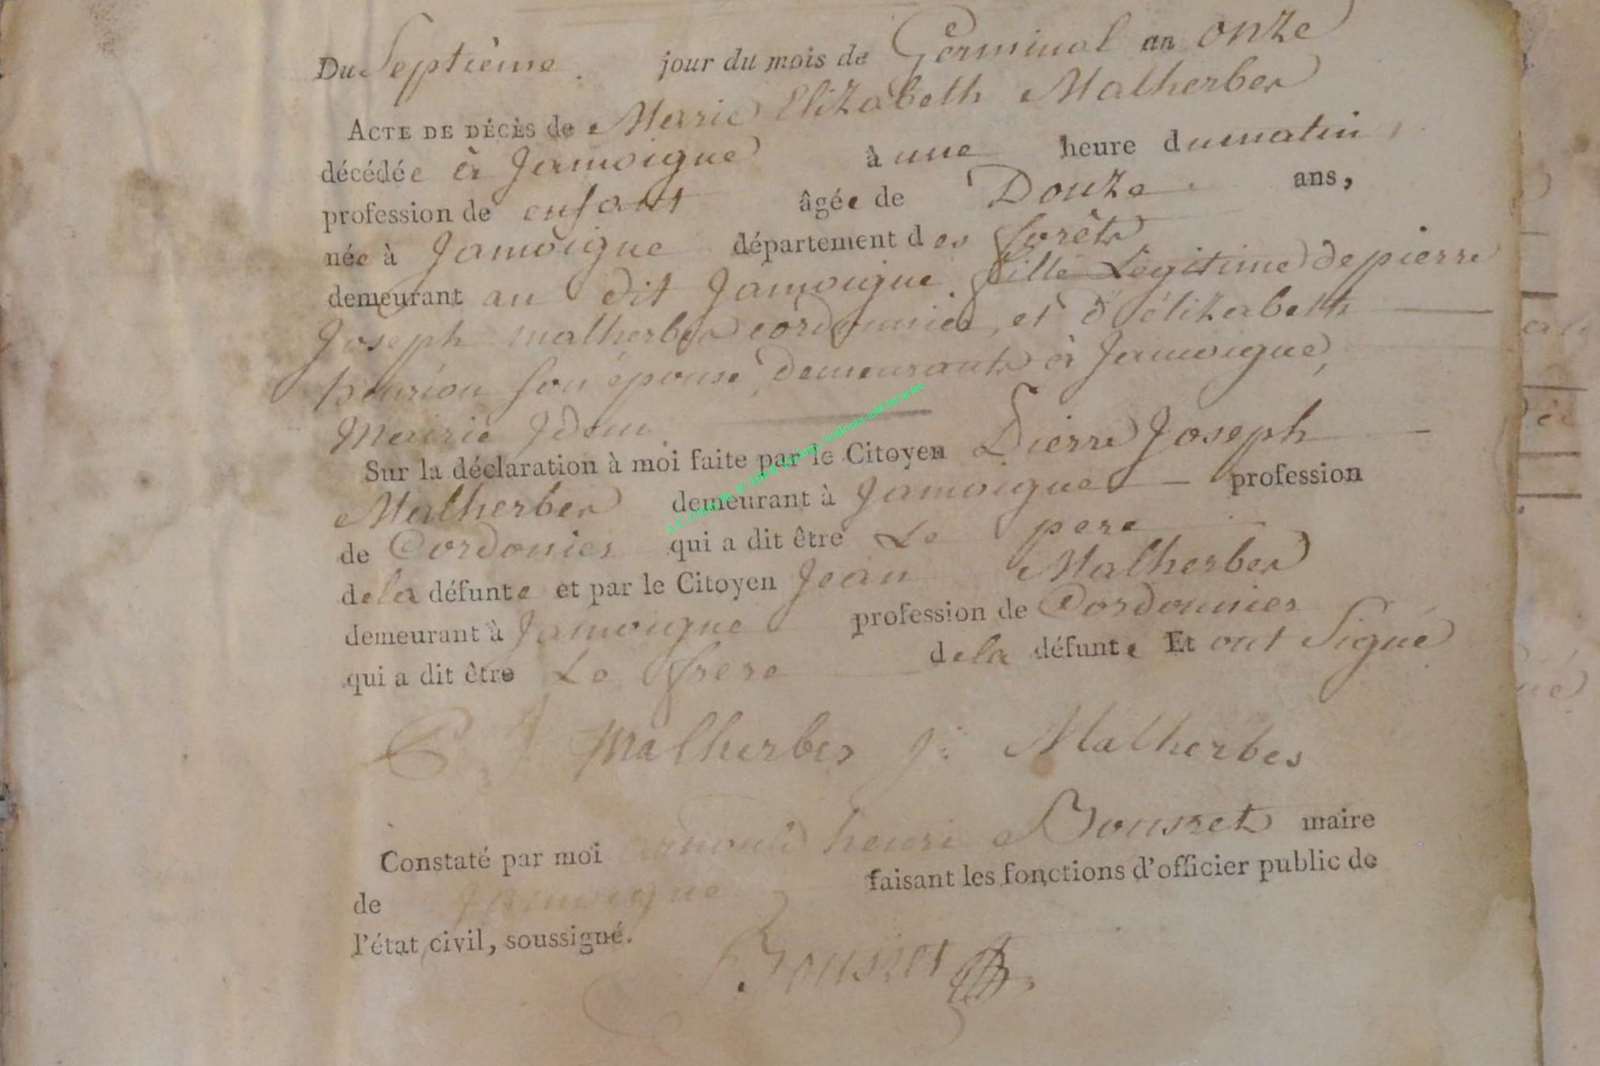 Du Septième jour du mois de Germinal an onze
ACTE DE DÉCÈS de Marie Elizabeth Malherbes
décédée à Jamoigne à une heure du matin
profession de enfant âgée de Douze ans,
née à Jamoigne département des forêts
demeurant au dit Jamoigne fille Légitime de pierre
Joseph malherbes cordonnier, et d'élizabeth
son épouse, demeurants à Jamoigne,
Mairie Idem
Sur la déclaration à moi faite par le Citoyen Pierre Joseph
Malherbes demeurant à Jamoigne profession
de Cordonier qui a dit être Le pere
de la défunte et par le Citoyen Jean Malherbes
demeurant à Jamoigne profession de Cordonnier
qui a dit être Le frere de la défunte Et ont Signé
P J Malherbes J: Malherbes
Constaté par moi henri maire
de Jamoigne faisant les fonctions d'officier public de
l'état civil, soussigné.